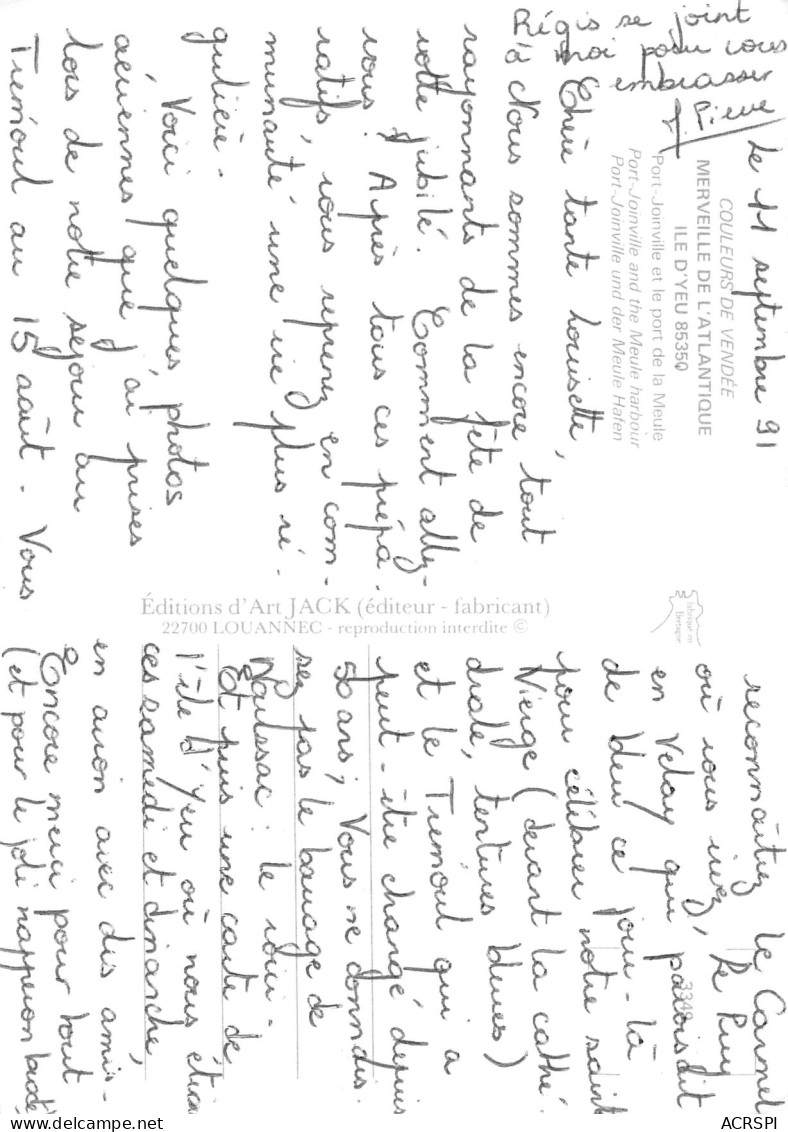 Régis se joint
à moi pour vous
embrasser
le 11 septembre 91
COULEURS DE VENDÉE
MERVEILLE DE L'ATLANTIQUE
ILE D'YEU 85350
Port-Joinville et le port de la Meule
Port-Joinville and the Meule harbour
Port-Joinville und der Meule Hafen
Chère tante Louisette,
Nous sommes encore tout
rayonnants de la fête de
votre jubilé. Comment allez-
vous ? Après tous ces prépa-
ratifs, vous reprenez en com-
munauté une vie plus ré-
gulière.
Voici quelques photos
aériennes que j'ai prises
lors de notre séjour au
Trémoul au 15 août. Vous
Éditions d'Art JACK (éditeur - fabricant)
22700 LOUANNEC - reproduction interdite ©
fabriqué en
Bretagne
3349
reconnaîtrez le Carmel
où vous irez, Le Puy
en Velay qui
de bleu ce jour-là
pour célébrer notre sainte
Vierge (devant la cathé-
drale, tentures bleues)
et le Trémoul qui a
peut-être changé depuis
50 ans ; Vous ne connais-
sez pas le barrage de
Naussac : le voici.
Et puis une carte de
l'île d'Yeu où nous étions
ces samedi et dimanche,
en avion avec des amis.
Encore merci pour tout
(et pour le joli napperon brodé)
ACRSPI